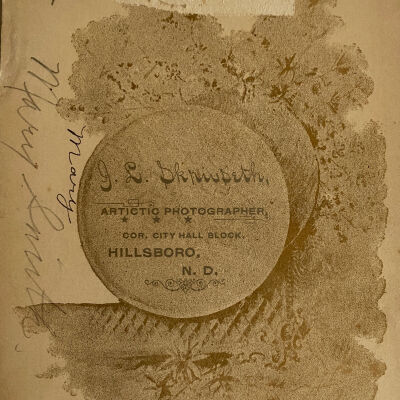 Mary Smith
Mary
J. L. Skpriseth,
ARTICTIC PHOTOGRAPHER,
COR. CITY HALL BLOCK.
HILLSBORO,
N. D.